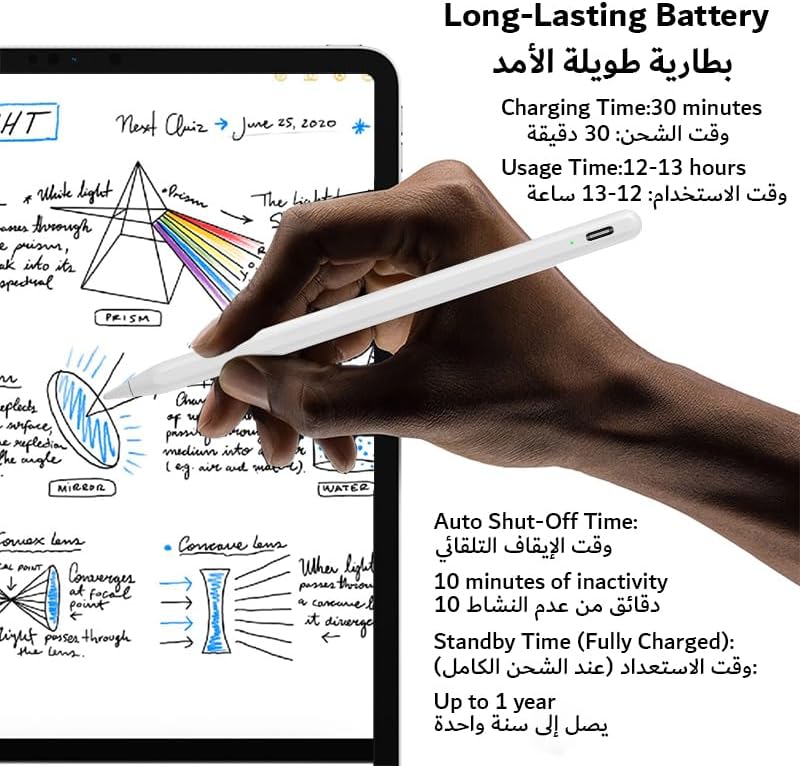 Long-Lasting Battery
بطارية طويلة الأمد
Charging Time:30 minutes
وقت الشحن: 30 دقيقة
Usage Time:12-13 hours
وقت الاستخدام: 12-13 ساعة
HT
Next Quiz → June 25, 2020 *
* White light
• Prism
The
through
prism,
into its
spectral
PRISM
surface,
the angle
MIRROR
medium into
(e.g. air and
WATER
Convex Lens
POINT
Converges
at focal
point
light passes through
the lens.
• Concave Lens
When light
passes
a concave
it
Auto Shut-Off Time:
وقت الإيقاف التلقائي
10 minutes of inactivity
10 دقائق من عدم النشاط
Standby Time (Fully Charged):
وقت الاستعداد (عند الشحن الكامل):
Up to 1 year
يصل إلى سنة واحدة